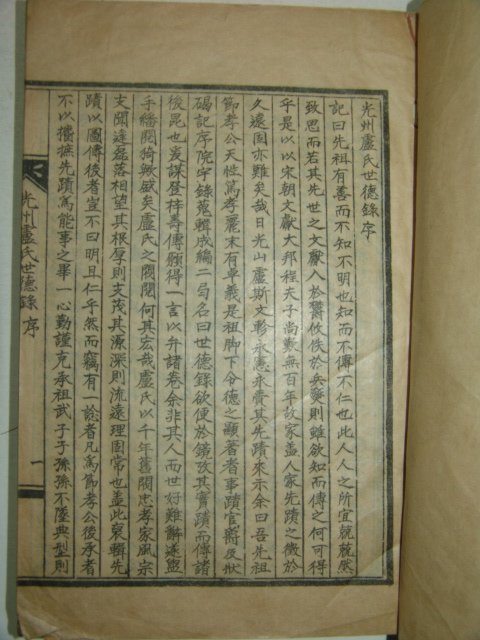 光州盧氏世德錄序
記曰先祖有善而不知不明也知而不傳不仁也此人人之所宜兢兢然
致思而若其先世之文獻入於欝攸佚於兵燹則雖欲知而傳之何可得
乎是以以宋朝文獻大邦程夫子尚歎無百年故家盖人家先蹟之徵於
久遠固亦難矣哉日光山盧斯文軫永憲來賚其先蹟來示余曰吾先祖
節孝公天性篤孝麗末有卓義是祖脚下令德之顯著者事蹟官爵及狀
碣記序院宇錄蒐輯成編二局名曰世德錄欲便於鏡攷其實蹟而傳諸
後昆也爰謀登梓壽傳願得一言以弁諸卷余非其人而世好難辭遂盥
手繙閱猗歟盛矣盧氏之閥閱何其宏哉盧氏以千年舊閥忠孝家風宗
支閥逢磊落相望其根厚則支茂其源深則流遠理固常也盖此裒輯先
蹟以圖傳後者豈不曰明且仁乎然而竊有一說者凡爲節孝公後承者
不以攟摭先蹟爲能事之畢一心勤謹克承祖武子子孫孫不墜典型則
光州盧氏世德錄 序
一